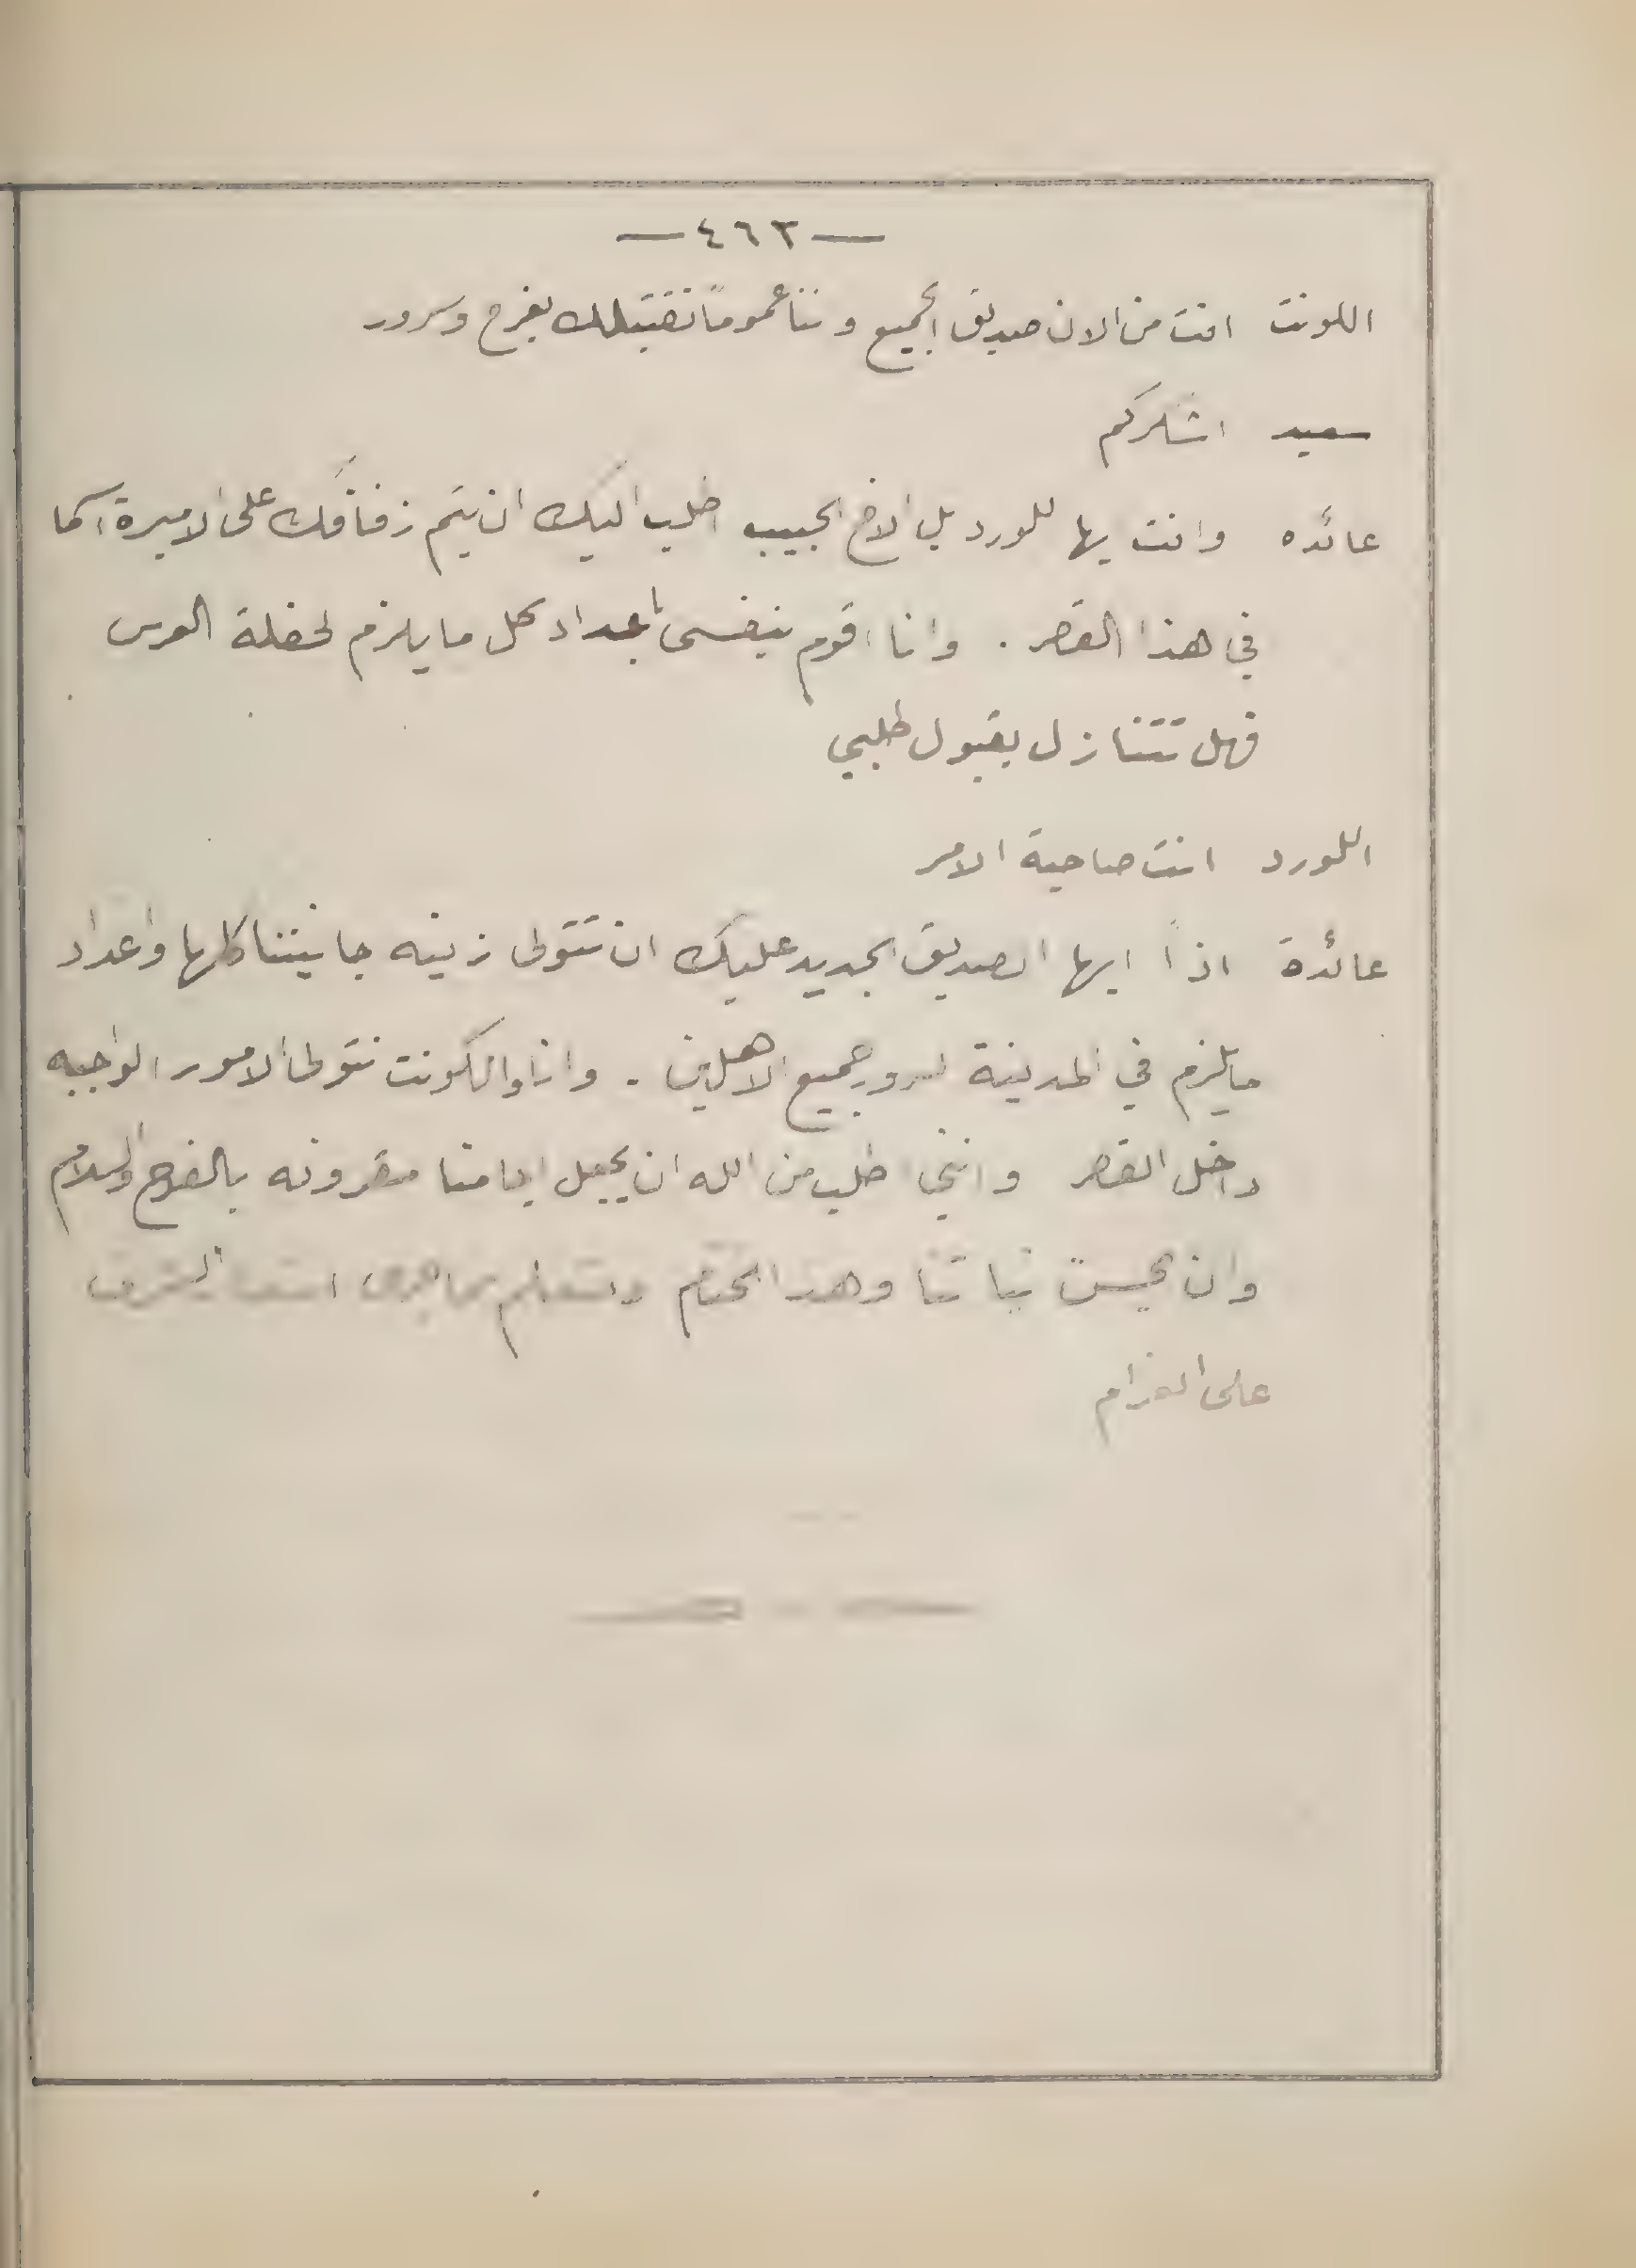 — ٤٦٣ —
الكونت انت من الان صديق الجميع واننا عموماً نقتبلك بفرح وسرور
سعيد اشكركم
عائده وانت يها اللورد بل الاخ الحبيب اطلب اليك ان يتم زفافك على الاميرة
في هذا القصر . وانا اقوم بنفسى باعداد كل ما يلزم لحفلة العرس
فهل تتنازل بقبول طلبي
اللورد انت صاحبة الامر
عائدة اذاً ايها الصديق الجديد عليك ان تتولى زينه كلها واعداد
ما يلزم في المدينة لسرور جميع الاهلين . وانا والكونت نتولى الامور الواجبه
داخل القصر وانني اطلب من الله ان يجعل ايامنا مقرونه بالفرح والسلام
وان يحسن وهذا الختام الشرف
على الغرام